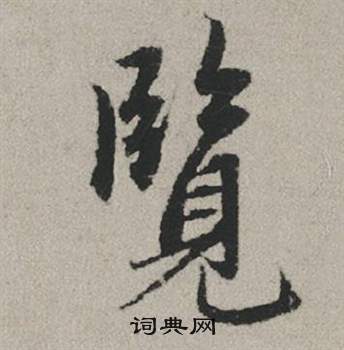 覽
词典网